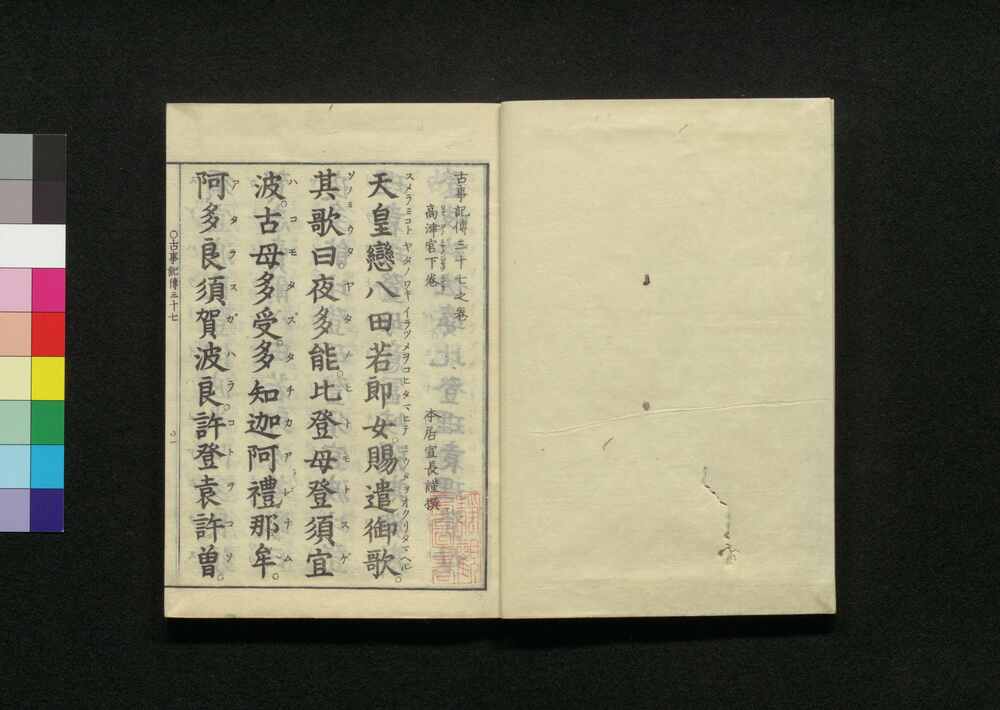 古事記傳三十七之巻
高津宮下巻
本居宣長謹撰
天皇戀八田若郎女。賜遣御歌。
其歌曰。夜多能。比登母登須宜
波。古母多受。多知迦阿禮那牟。
阿多良須賀波良。許登袁許曾。
〇古事記傳三十七